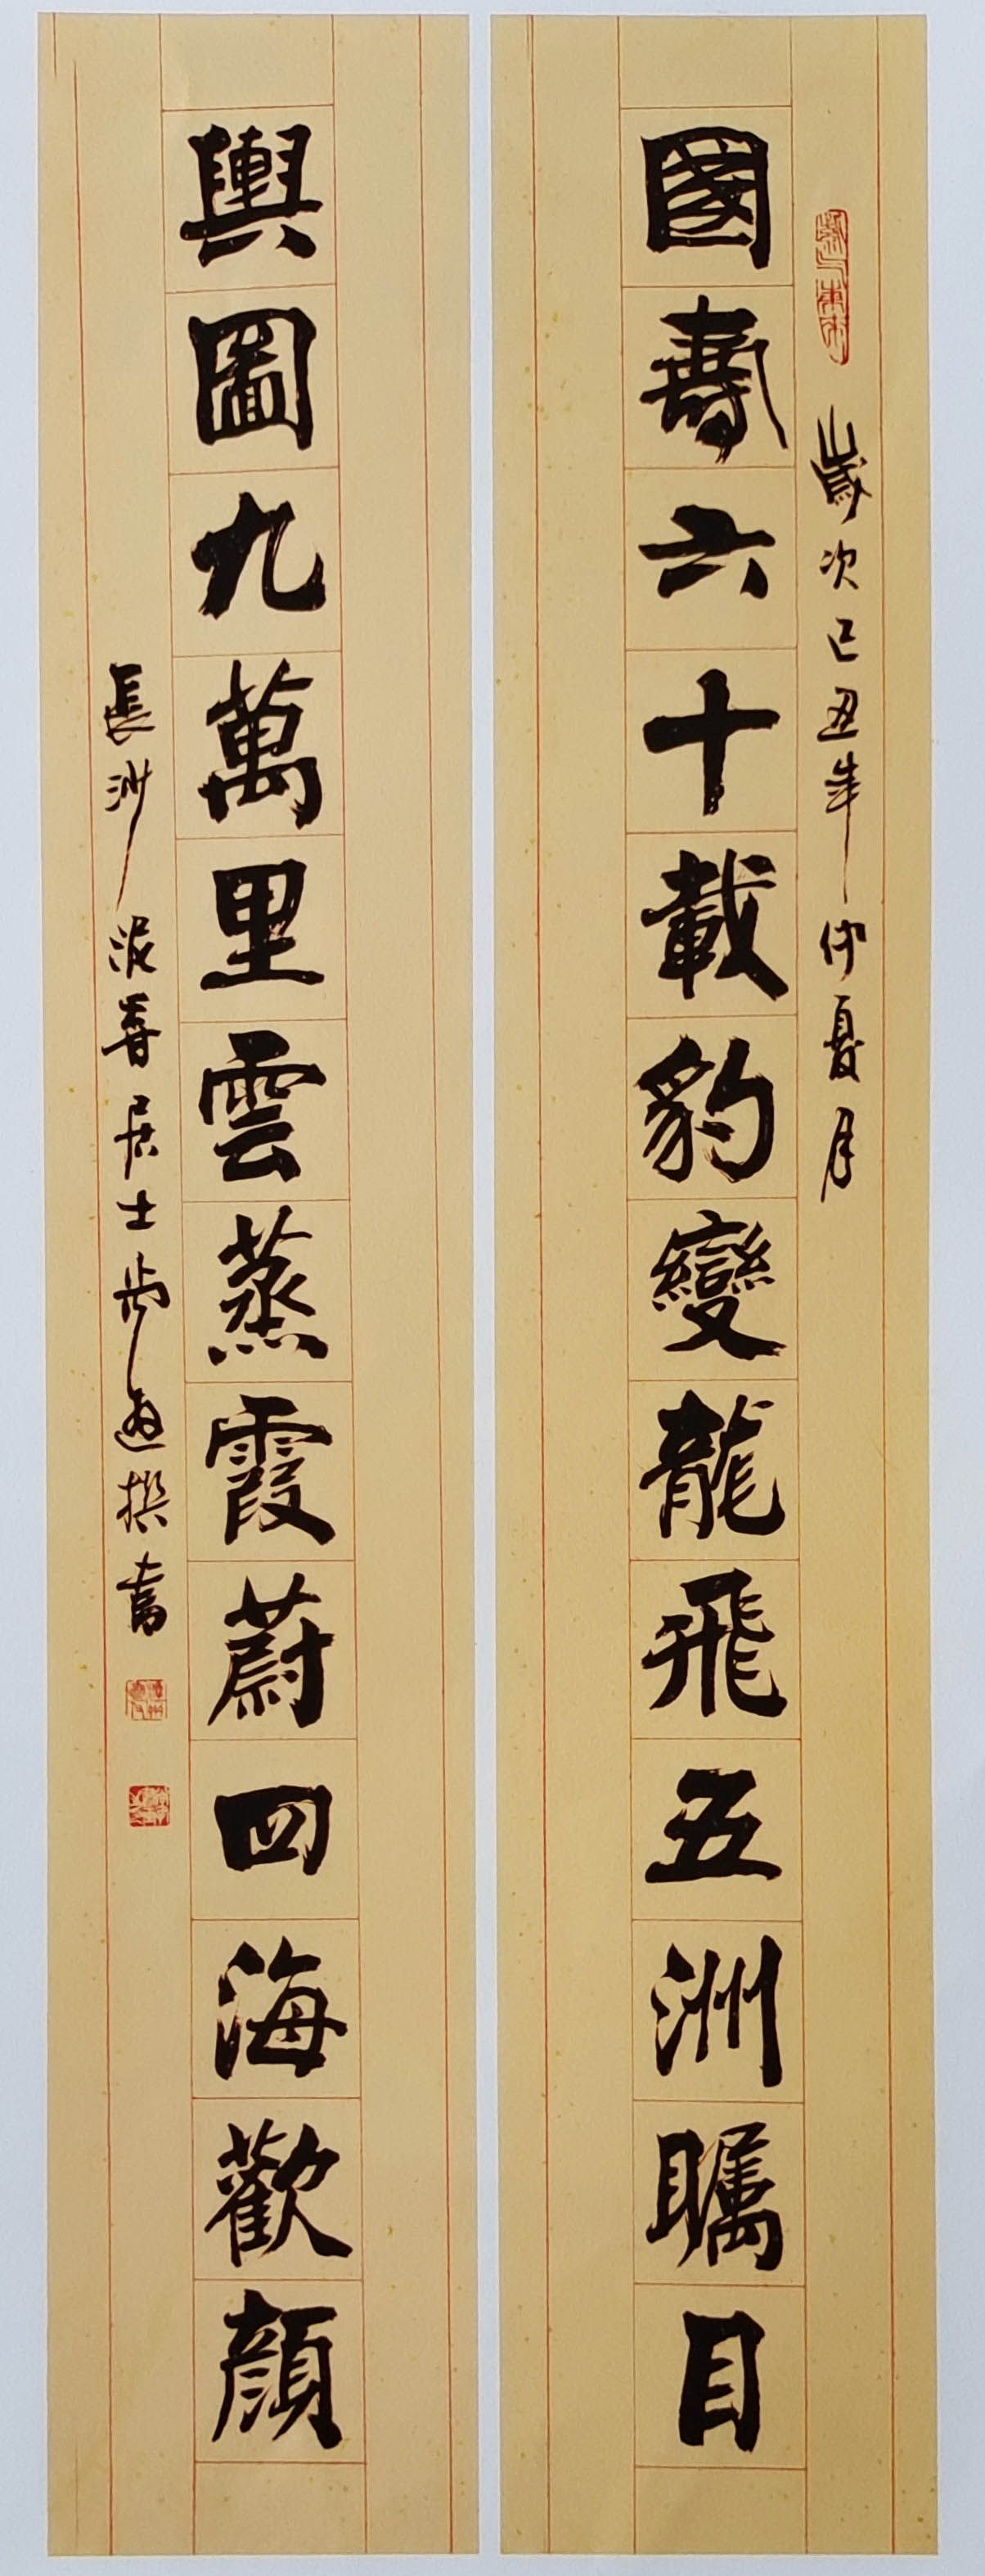 歲次己丑年仲夏月
國壽六十載豹變龍飛五洲矚目
輿圖九萬里雲蒸霞蔚四海歡顏
長沙泥香居士尚過撰書